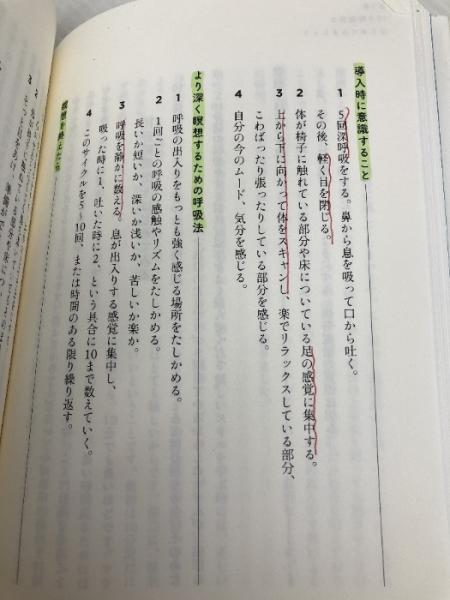 導入時に意識すること
1 5回深呼吸をする。鼻から息を吸って口から吐く。
その後、軽く目を閉じる。
2 体が椅子に触れている部分や床についている足の感覚に集中する。
3 上から下に向かって体をスキャンし、楽でリラックスしている部分、
こわばったり張ったりしている部分を感じる。
4 自分の今のムード、気分を感じる。
より深く瞑想するための呼吸法
1 呼吸の出入りをもっとも強く感じる場所をたしかめる。
2 1回ごとの呼吸の感触やリズムをたしかめる。
長いか短いか、深いか浅いか、苦しいか楽か。
3 呼吸を静かに数える。息が出入りする感覚に集中し、
吸った時に1、吐いた時に2、という具合に10まで数えていく。
4 このサイクルを5〜10回、または時間のある限り繰り返す。
瞑想を終えたら